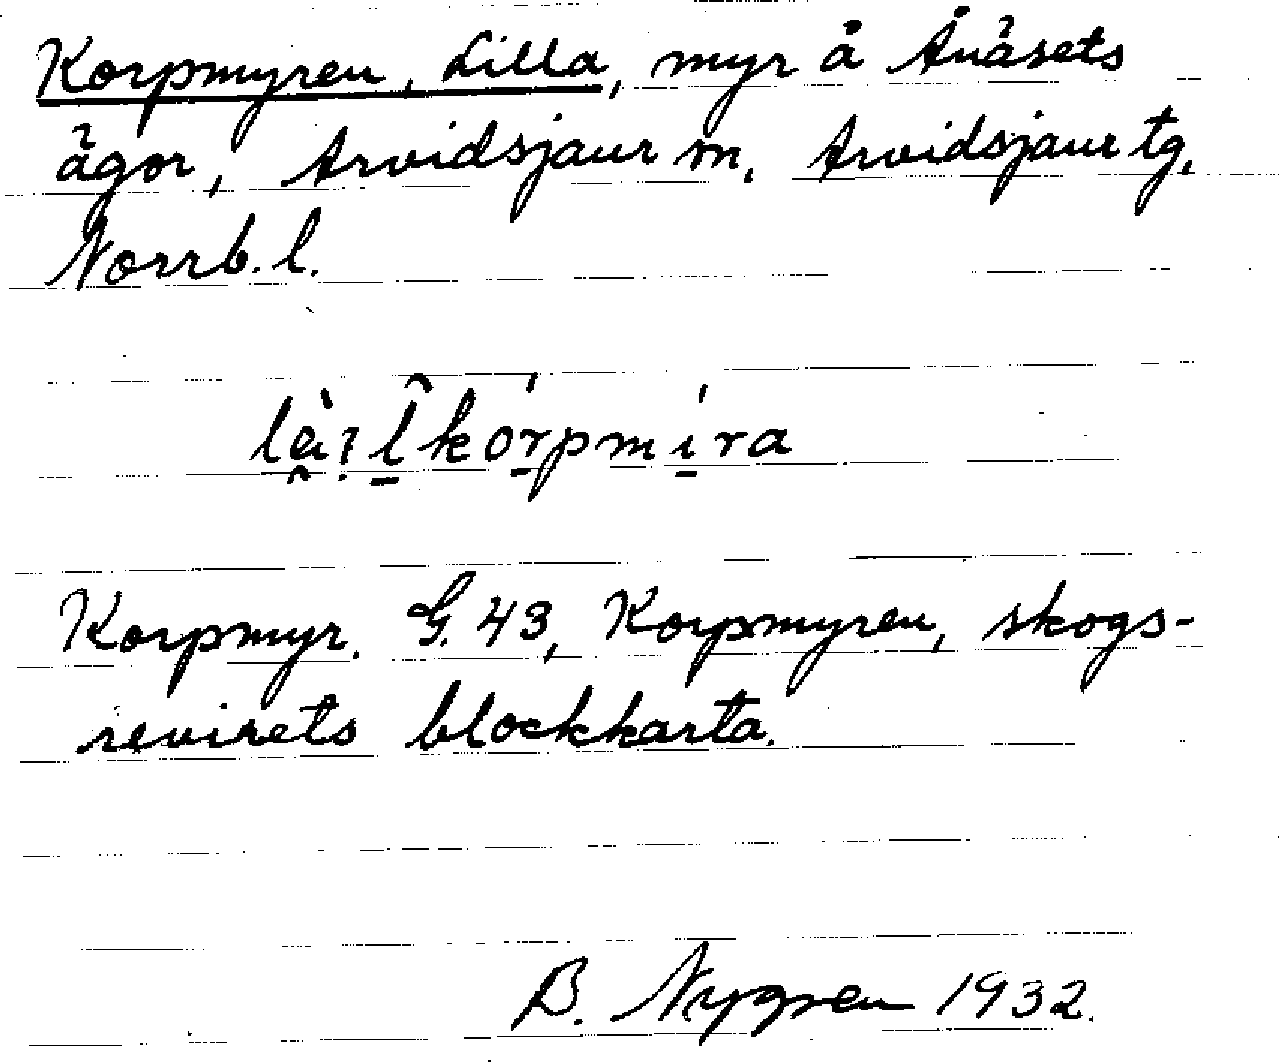 Korpmyren, Lilla, myr å Ånäsets
ägor, Arvidsjaur sn, Arvidsjaur tg.
Norrb. l.
Korpmyr. G. 43, Korpmyren, skogs-
revirets blockkarta.
B. Nygren 1932.